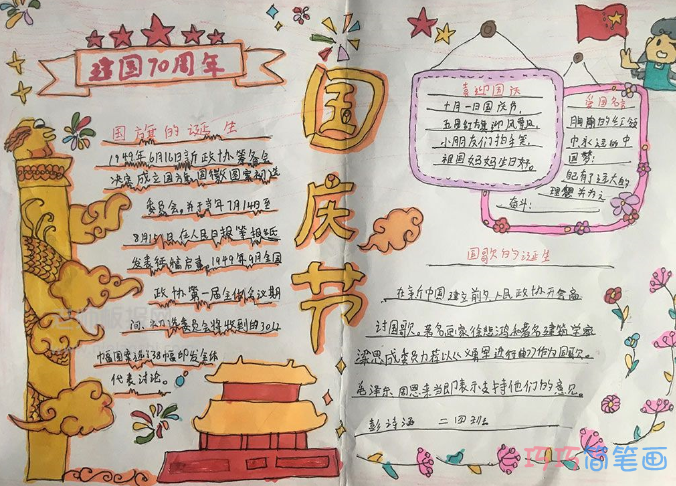 建国70周年
国旗的诞生
1949年6月16日新政协筹备会
决定成立国旗、国徽图案初选
委员会,并于当年7月14日至
8月15日在人民日报等报纸
发表征稿启事,1949年9月全国
政协第一届全体会议期
间,初选委员会将收到的3012
幅图案选38幅印发全体
代表讨论。
国庆节
喜迎国庆
十月一日国庆节,
五星红旗迎风飘。
小朋友们拍手笑,
祖国妈妈生日好。
爱国名言
胸前的红领
巾永远的中
国梦:
记有了远大的
理想并为之
奋斗:
国歌的诞生
在新中国建立前夕人民政协开会商
讨国歌。著名画家徐悲鸿和著名建筑学家
梁思成委员力荐以义勇军进行曲作为国歌。
毛泽东、周恩来当即表示支持他们的意见。
彭诗涵 二四班
巧巧简笔画